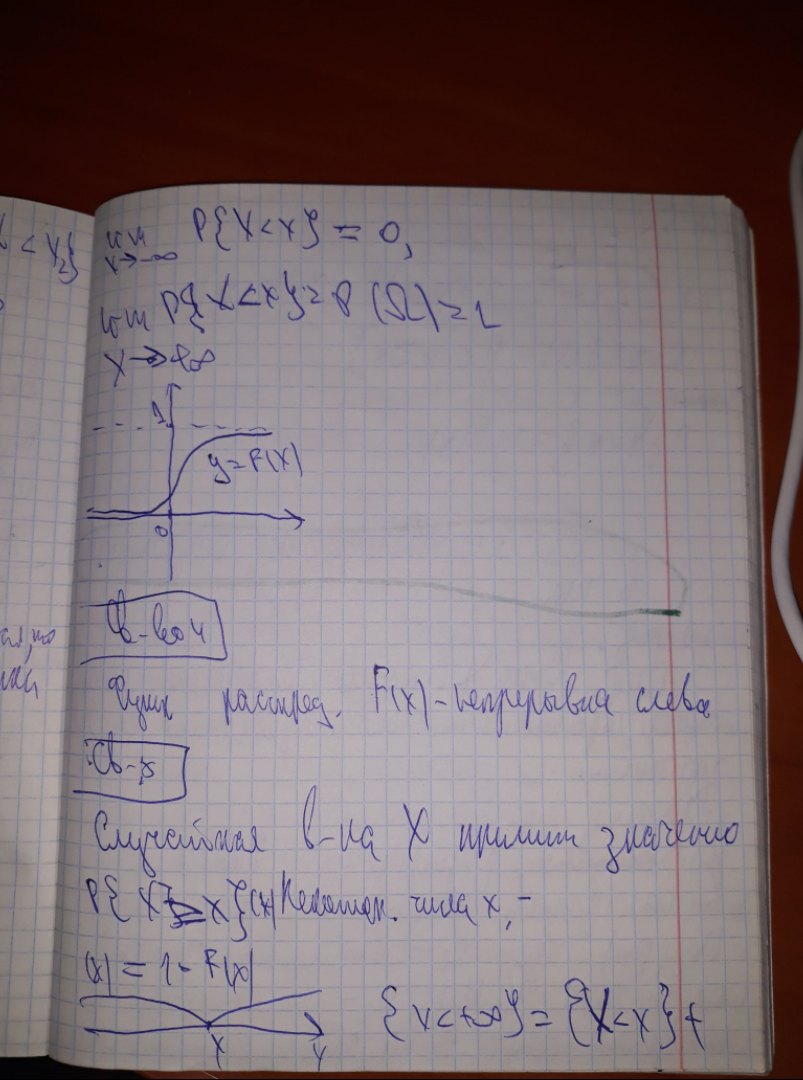 < X₂}
lim P{X<x} = 0,
x→-∞
lim P{X<x} = P(Ω) = 1
x→+∞
1
y=F(x)
0
Св-во 4
Функ распред. F(x) - непрерывна слева
Св-5
Случайная в-на X приним значению
P{X≥x} (x) некотор. числа x, -
(x) = 1 - F(x)
{X<+∞} = {X<x} +
x X